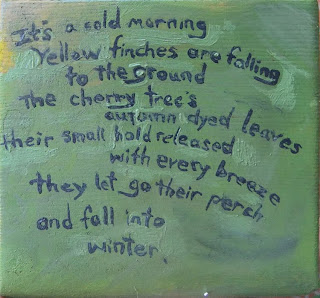 It's a cold morning
Yellow finches are falling
to the ground
The cherry tree's
autumn dyed leaves
their small hold released
with every breeze
they let go their perch
and fall into
winter.